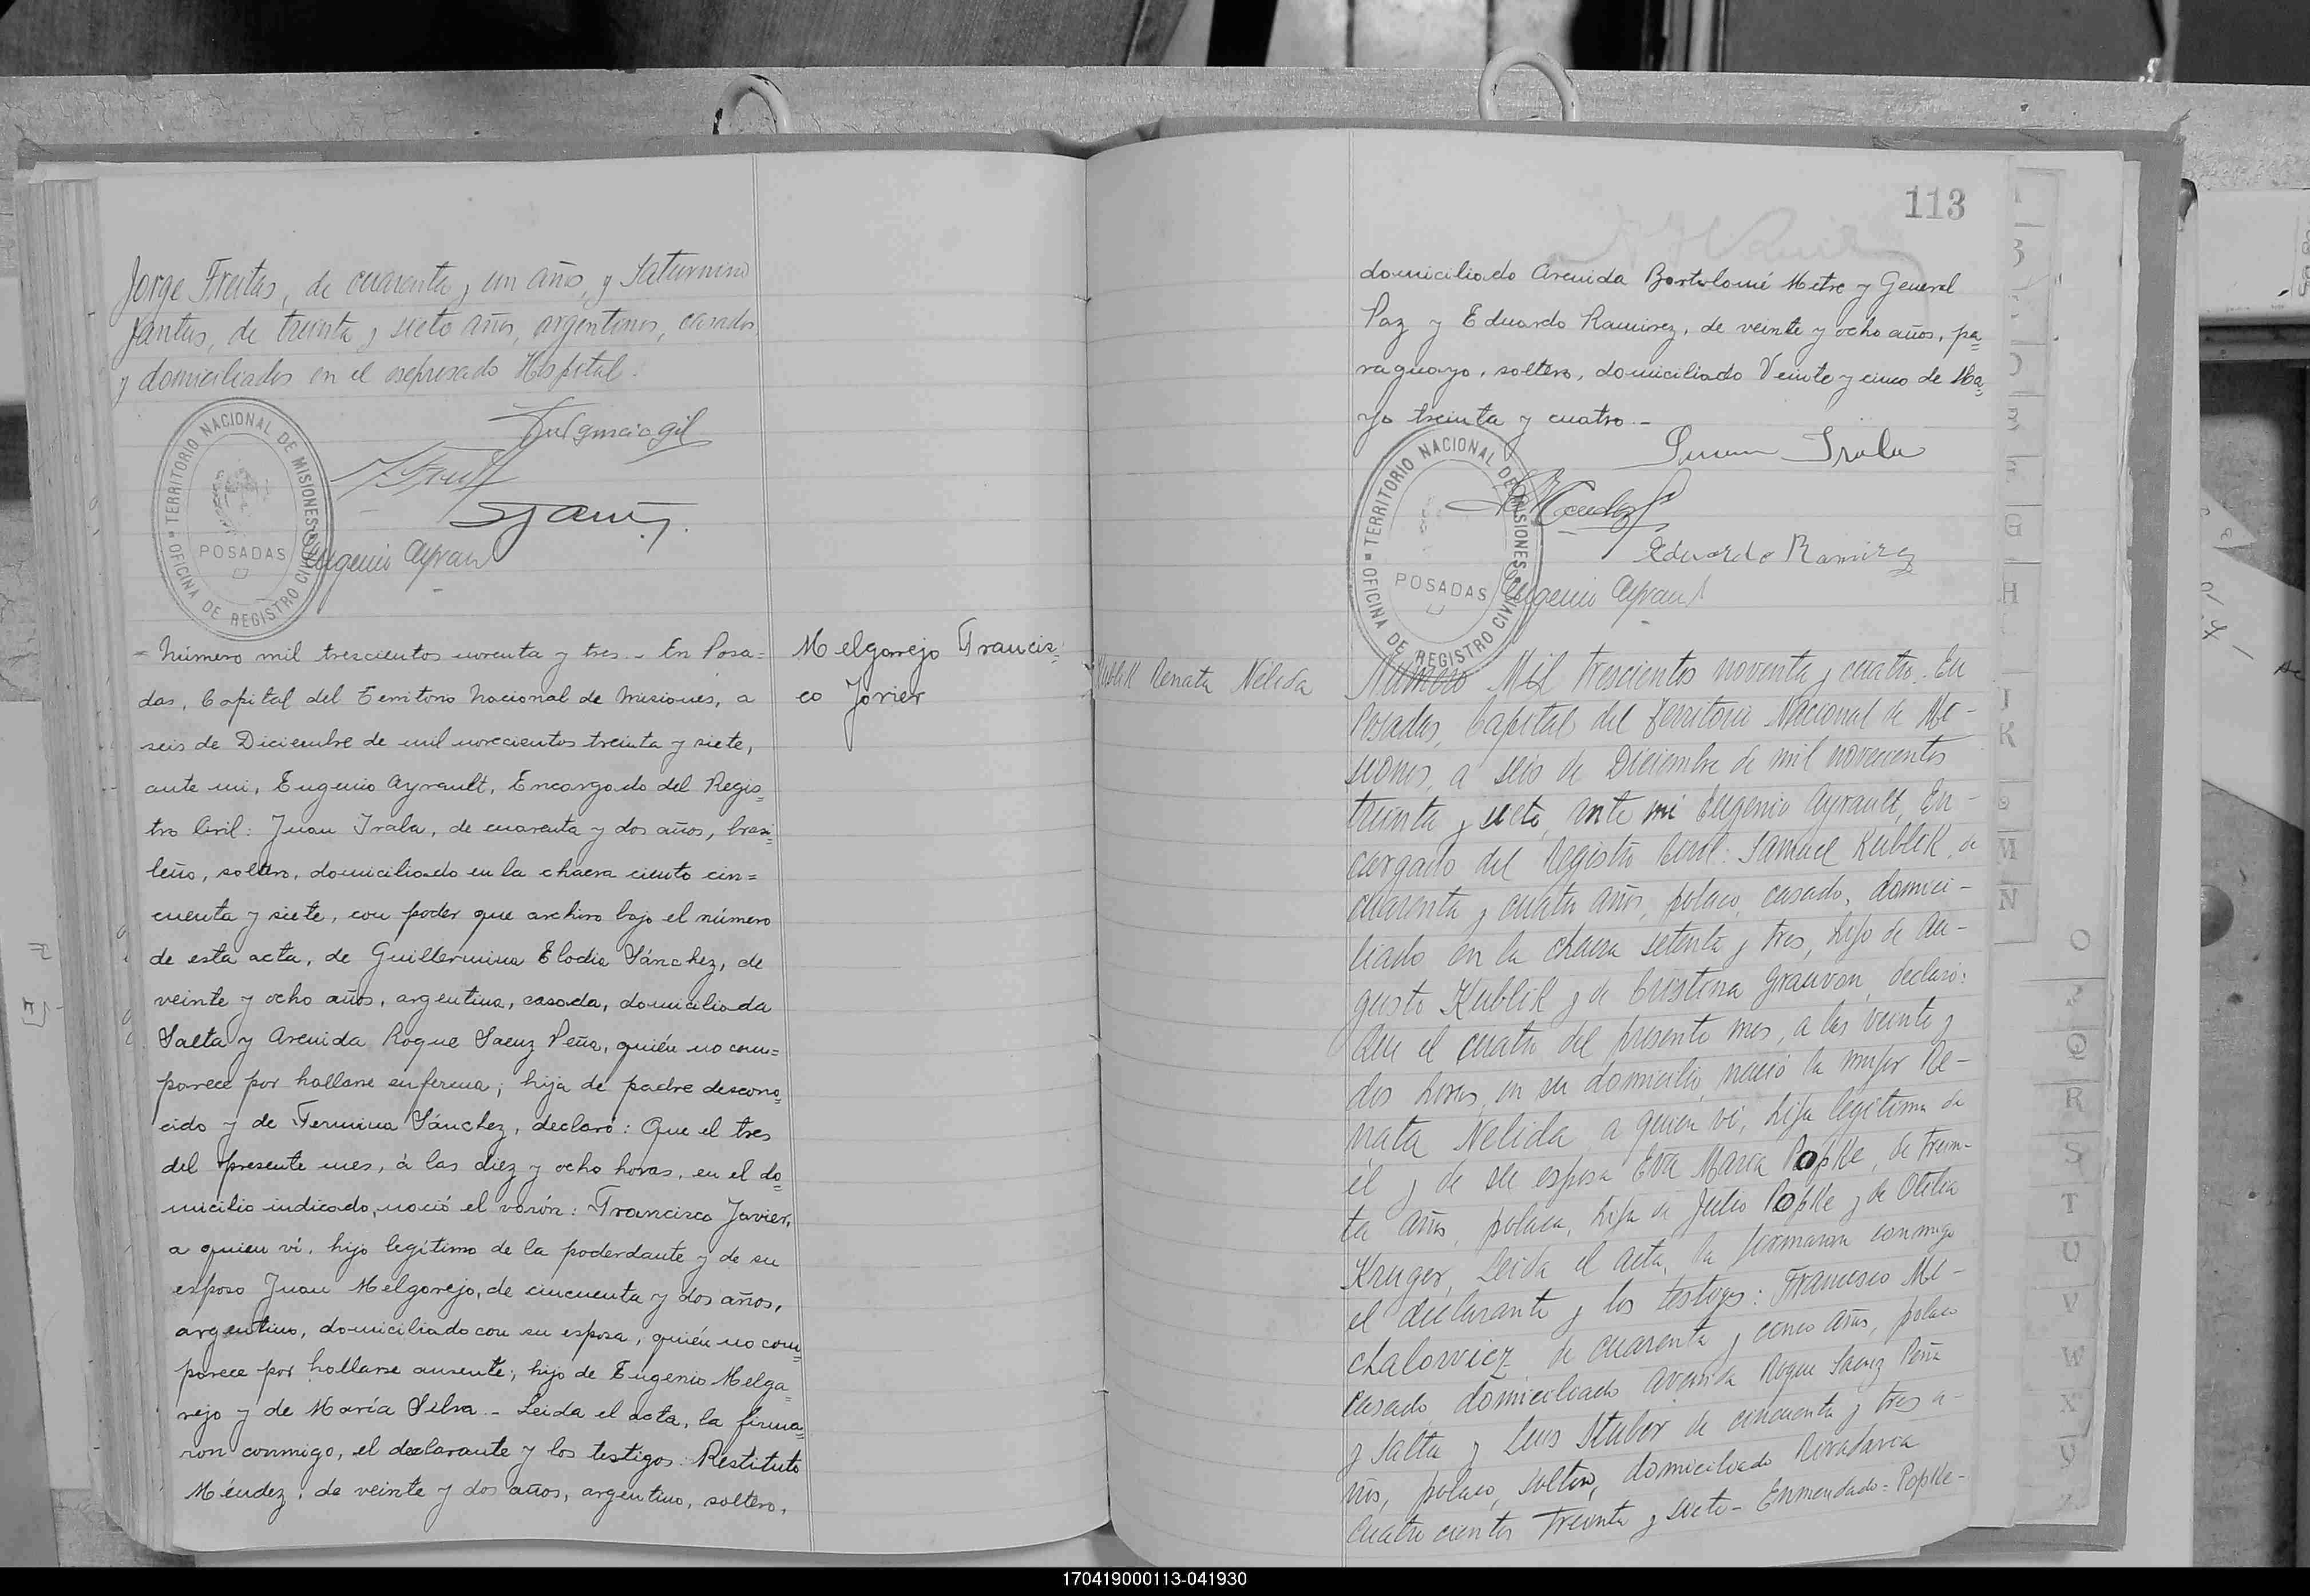 Jorge Freitas, de cuarenta y un años, y Saturnino
Santus, de treinta y siete años, argentinos, casados
y domiciliados en el expresado Hospital.
TERRITORIO NACIONAL DE MISIONES
OFICINA DE REGISTRO CIVIL
POSADAS
Eugenio Ayrault
- Número mil trescientos noventa y tres.- En Posa=
das, Capital del Territorio Nacional de Misiones, a
seis de Diciembre de mil novecientos treinta y siete,
ante mi, Eugenio Ayrault, Encargado del Regis=
tro Civil: Juan Irala, de cuarenta y dos años, brasi=
leño, soltero, domiciliado en la chacra ciento cin=
cuenta y siete, con poder que archivo bajo el número
de esta acta, de Guillermina Elodia Sánchez, de
veinte y ocho años, argentina, casada, domiciliada
Salta y Avenida Roque Saenz Peña, quién no com=
parece por hallarse enferma; hija de padre descono=
cido y de Fermina Sánchez, declaró: Que el tres
del presente mes, á las diez y ocho horas, en el do=
micilio indicado, nació el varón: Francisco Javier,
a quien vi, hijo legítimo de la poderdante y de su
esposo Juan Melgarejo, de cincuenta y dos años,
argentino, domiciliado con su esposa, quién no com=
parece por hallarse ausente; hijo de Eugenio Melga=
rejo y de María Silva.- Leida el acta, la firma=
ron conmigo, el declarante y los testigos: Restituto
Méndez, de veinte y dos años, argentino, soltero,
Melgarejo Francis=
co Javier
113
domiciliado Avenida Bartolomé Mitre y General
Paz y Eduardo Ramirez, de veinte y ocho años, pa=
raguayo, soltero, domiciliado Veinte y cinco de Ma=
yo treinta y cuatro.-
Juan Irala
TERRITORIO NACIONAL DE MISIONES
OFICINA DE REGISTRO CIVIL
POSADAS
Eduardo Ramirez
Eugenio Ayrault
Kublik Renata Nélida
Número Mil trescientos noventa y cuatro. En
Posadas, Capital del Territorio Nacional de Mi-
siones, a seis de Diciembre de mil novecientos
treinta y siete, ante mi Eugenio Ayrault, En-
cargado del Registro Civil: Samuel Kublik, de
cuarenta y cuatro años, polaco, casado, domici-
liado en la chacra setenta y tres, hijo de Au-
gusto Kublik y de Cristina Grauvan, declaró:
Que el cuatro del presente mes, a las veinte y
dos horas, en su domicilio, nació la mujer Re-
nata Nelida a quien vi, hija legitima de
él y de su esposa Eva Maria Popke, de trein-
ta años, polaca, hija de Julio Popke y de Otilia
Kruger, Leida el acta, la firmaron conmigo
el declarante y los testigos: Francisco Mi-
chalowicz de cuarenta y cinco años, polaco
casado domiciliado Avenida Roque Saenz Peña
y Salta y Luis Stuber de cincuenta y tres a-
ños, polaco, soltero, domiciliado Rivadavia
cuatrocientos treinta y siete- Enmendado= Popke-
G
H
J
K
M
N
O
Q
R
S
T
U
V
W
X
Y
Z
170419000113-041930